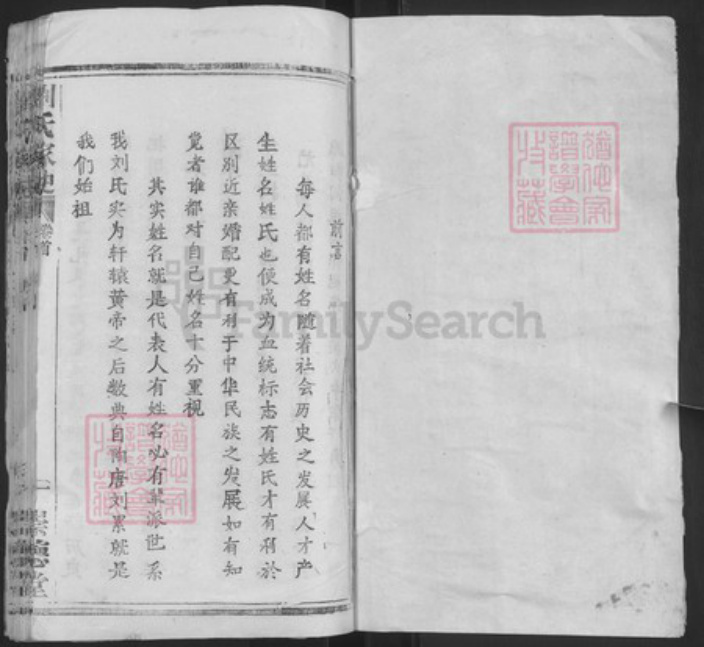 前言
每人都有姓名随着社会历史之发展人才产
生姓名姓氏也便成为血统标志有姓氏才有利於
区别近亲婚配更有利于中华民族之发展如有知
觉者谁都对自己姓名十分重视
其实姓名就是代表人有姓名必有辈派世系
我刘氏实为轩辕黄帝之后数典自陶唐刘累就是
我们始祖
刘氏家史
卷首
一
FamilySearch